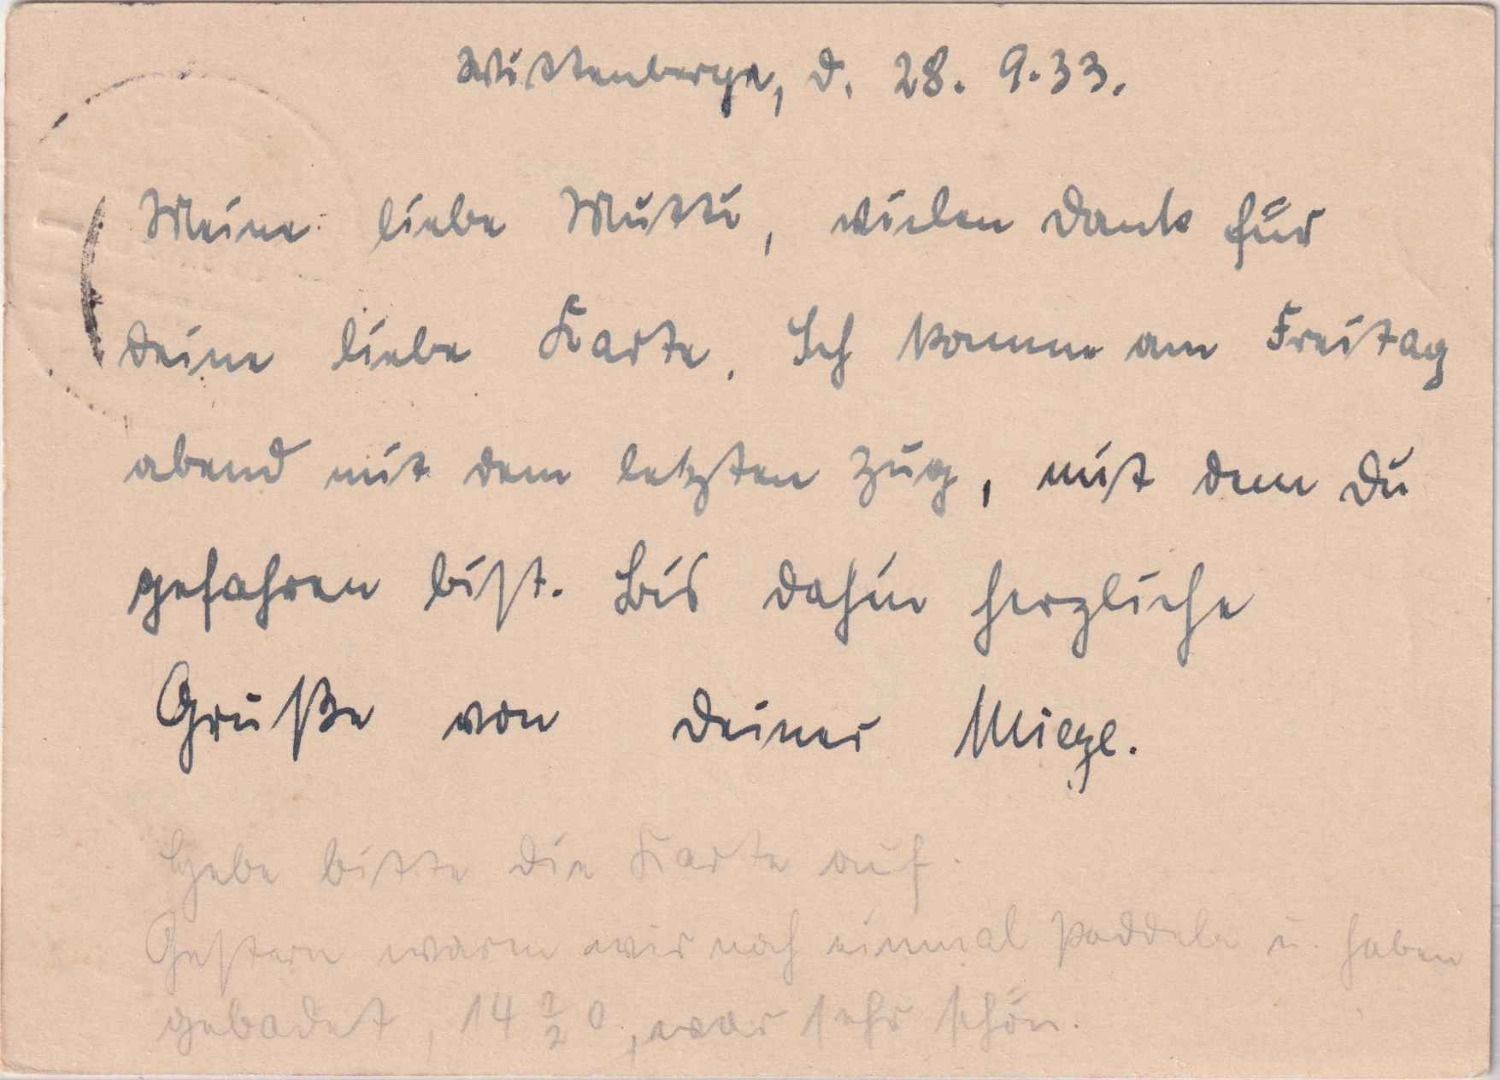 Wittenberge, d. 28. 9.33.
Meine liebe Mutti, vielen Dank für
deine liebe Karte. Ich komme am Freitag
abend mit dem letzten Zug, mit dem Du
gefahren bist. Bis dahin herzliche
Grüße von Deiner Miege.
Hebe bitte die Karte auf.
Gestern waren wir noch einmal paddeln u. haben
gebadet, 14 1/2 0, war sehr schön.